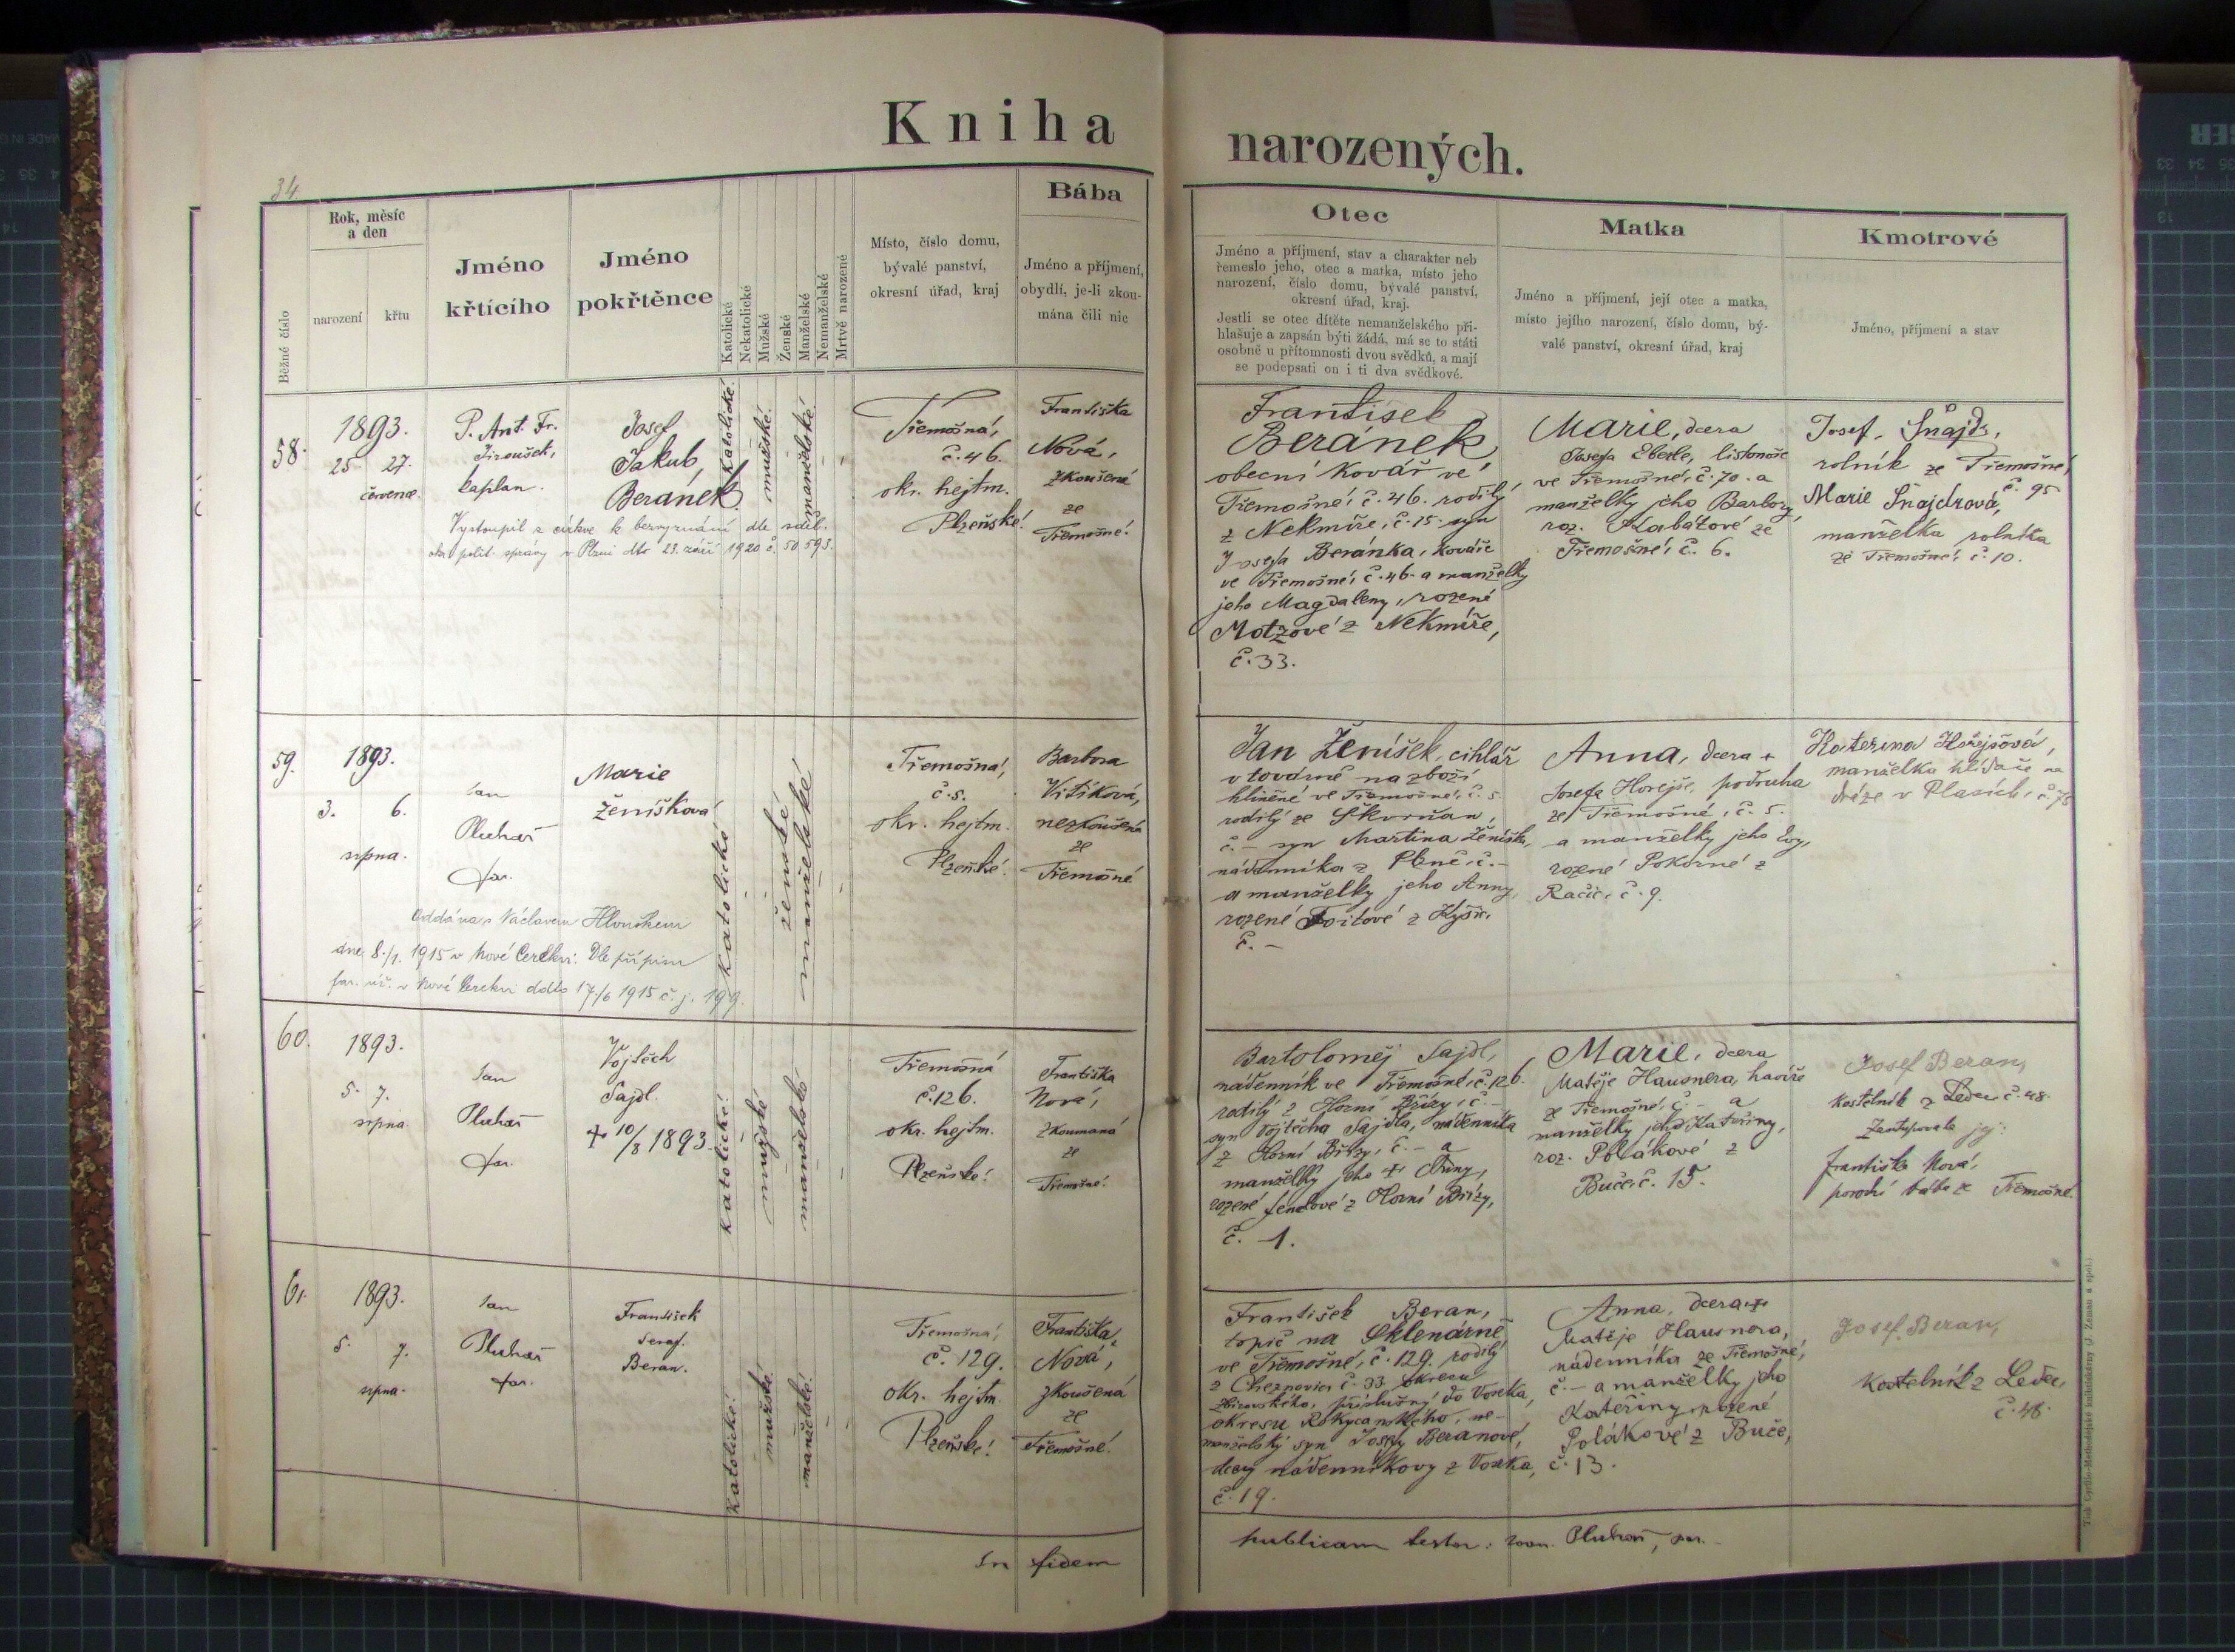 Kniha narozených.
34.
Běžné číslo
Rok, měsíc
a den
narození
křtu
Jméno
křtícího
Jméno
pokřtěnce
Katolické
Nekatolické
Mužské
Ženské
Manželské
Nemanželské
Mrtvě narozené
Místo, číslo domu,
bývalé panství,
okresní úřad, kraj
Bába
Jméno a příjmení,
obydlí, je-li zkou-
mána čili nic
Otec
Jméno a příjmení, stav a charakter neb
řemeslo jeho, otec a matka, místo jeho
narození, číslo domu, bývalé panství,
okresní úřad, kraj.
Jestli se otec dítěte nemanželského při-
hlašuje a zapsán býti žádá, má se to státi
osobně u přítomnosti dvou svědků, a mají
se podepsati on i ti dva svědkové.
Matka
Jméno a příjmení, její otec a matka,
místo jejího narození, číslo domu, bý-
valé panství, okresní úřad, kraj
Kmotrové
Jméno, příjmení a stav
58.
1893.
25. 27.
července.
P. Ant. Fr.
Jiroušek,
kaplan.
Josef
Jakub,
Beránek.
katolické.
mužské.
manželské.
Třemošná,
č. 46.
okr. hejtm.
Plzeňské.
Františka
Nová,
zkoušená
ze
Třemošné.
Vystoupil z církve k bezvyznání dle sděl.
okr. polit. správy v Plzni dto 23. září 1920 č. 50.593.
František
Beránek
obecní kovář ve
Třemošné, č. 46. rodilý
z Nekmíře, č. 15. syn
Josefa Beránka, kováře
ve Třemošné, č. 46. a manželky
jeho Magdaleny, rozené
Motzové z Nekmíře,
č. 33.
Marie, dcera
Josefa Eberle, listonoše
ve Třemošné, č. 70. a
manželky jeho Barbory,
roz. Kabátové ze
Třemošné, č. 6.
Josef Šnajdr,
rolník ze Třemošné,
č. 95
Marie Šnajdrová,
manželka rolníka
ze Třemošné, č. 10.
59.
1893.
3. 6.
srpna.
Jan
Pluhař
far.
Marie
Ženíšková
katolické
ženské
manželské
Třemošná,
č. 5.
okr. hejtm.
Plzeňské.
Barbora
Vitíková,
nezkoušená
ze
Třemošné
Oddána s Václavem Hlouškem
dne 8./1. 1915 v Nové Cerekvi. Dle přípisu
far. úř. v Nové Cerekvi ddto 17./6 1915 č. j. 199.
Jan Ženíšek, cihlář
v továrně na zboží
hliněné ve Třemošné, č. 5.
rodilý ze Škvrňan,
č. – syn Martina Ženíška,
nádenníka z Plzně, č. –
a manželky jeho Anny,
rozené Foitové z Kyšic,
č. –
Anna, dcera +
Josefa Horejše, podruha
ze Třemošné, č. 5.
a manželky jeho Evy,
rozené Pokorné z
Račic, č. 9.
Kateřina Hořejšová,
manželka hlídače na
dráze v Plasích, č. 75
60.
1893.
5. 7.
srpna.
Jan
Pluhař
far.
Vojtěch
Sajdl.
+ 10/8 1893.
katolické.
mužské
manželské
Třemošná
č. 126.
okr. hejtm.
Plzeňské.
Františka
Nová,
zkoumaná
ze
Třemošné.
Bartoloměj Sajdl,
nádenník ve Třemošné, č. 126.
rodilý z Horní Břízy, č. –
syn Vojtěcha Sajdla, nádenníka
z Horní Břízy, č. – a
manželky jeho +
rozené z Horní Břízy,
č. 1.
Marie, dcera
Matěje Hausnera, havíře
ze Třemošné, č. – a
manželky jeho Kateřiny,
roz. Polákové z
Buče, č. 15.
Josef Beran,
kostelník z Ledec č. 48.
Zastupovala jej:
Františka Nová,
porodní bába ze Třemošné.
61.
1893.
5. 7.
srpna.
Jan
Pluhař
far.
František
Seraf.
Beran.
katolické.
mužské.
manželské.
Třemošná,
č. 129.
okr. hejtm.
Plzeňské.
Františka
Nová,
zkoušená
ze
Třemošné.
František Beran,
topič na Sklenárně
ve Třemošné, č. 129. rodilý
z Cheznovic č. 33 okresu
Zbirovského, příslušný do Voseka,
okresu Rokycanského, ne-
manželský syn Josefy Beranové,
dcery nádenníkovy z Voseka,
č. 19.
Anna, dcera +
Matěje Hausnera,
nádenníka ze Třemošné,
č. – a manželky jeho
Kateřiny, rozené
Polákové z Buče,
č. 13.
Josef Beran,
kostelník z Ledec,
č. 48.
In fidem publicam testor: Joan. Pluhař, par.
Tisk Cyrillo-Methodějské knihtiskárny (J. Zeman a spol.)